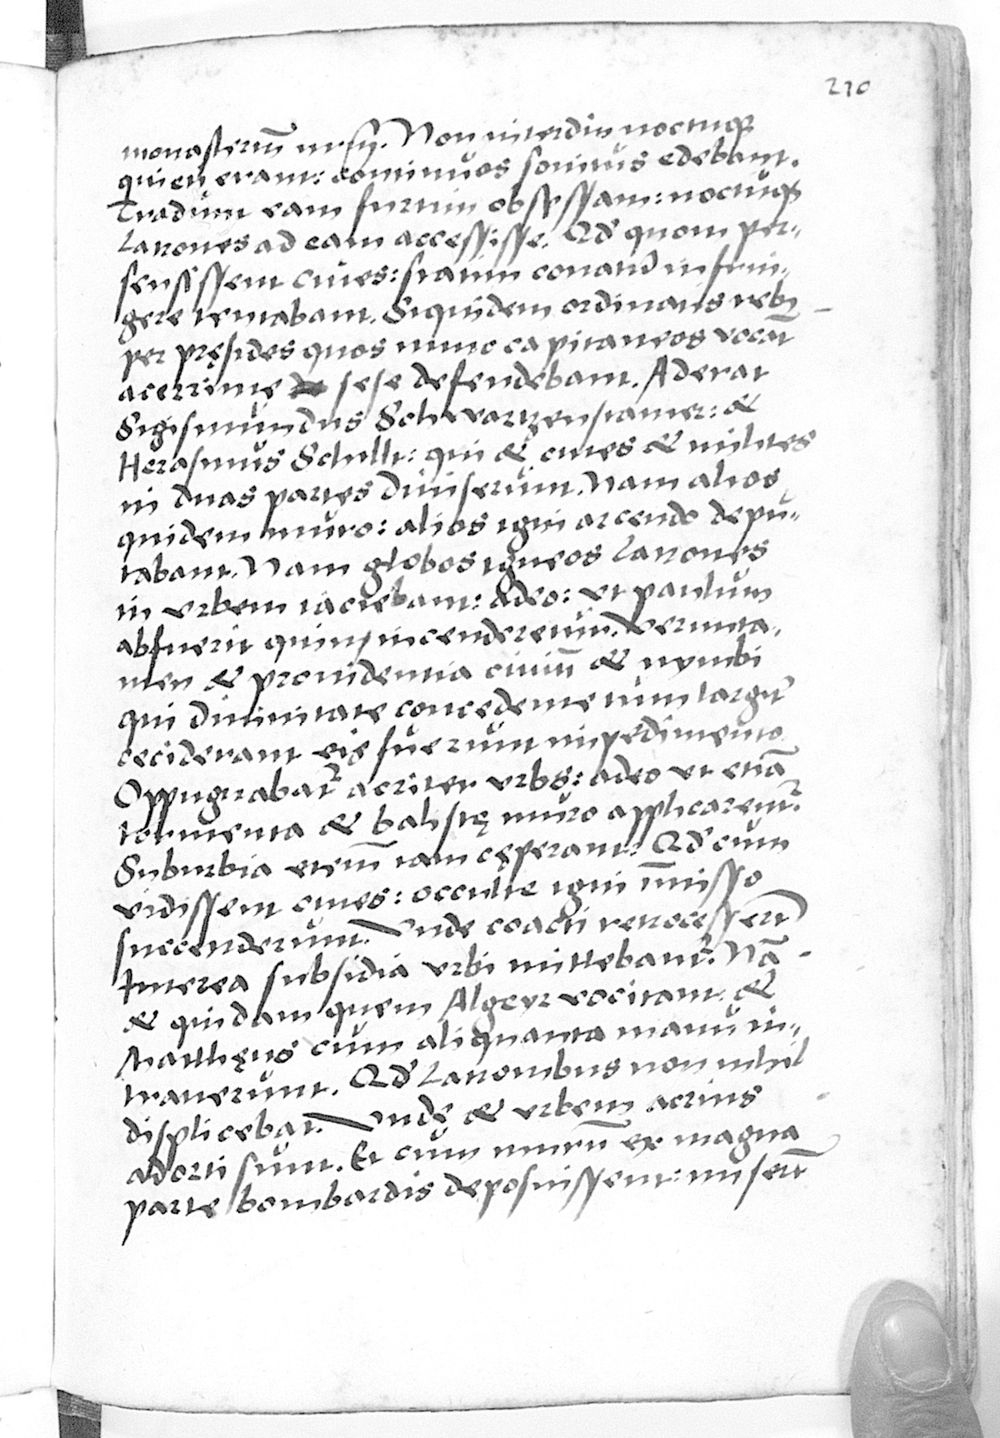 210
monasteriū nr̄ꝫ. Non interdiu noctuqꝫ
quieti erant: continuos sonitus edebant.
Tradunt eam furtim obsessam: noctuqꝫ
Latrones ad eam accessisse. Qd' quom per-
sensissent ciues: statim conatū infrin-
gere tentabant. Siquidem ordinatis rebꝰ
per pręsides quos nunc capitaneos vocāt
acerrime sese defendebant. Aderat
Sigismundus Schwartzenstainer: &
Herasmus Schillt: qui & ciues & milites
in duas partes diuiserunt. Nam alios
quidem muro: alios igni arcendo depu-
tabant. Nam globos igneos Latrones
in vrbem iaciebant: adeo: vt paulum
abfuerit quin incenderetur. Verunta-
men & prouidentia ciuiū & nymbi
qui diuinitate concedente tum largiꝰ
ceciderant eis fuerunt impedimento
Oppugnabat̃ acriter vrbs: adeo vt etiā
tormenta & balistę muro applicarent̃.
Suburbia etenī iam cęperant: Qd' cum
vidissent ciues: occulte igni īmisso
succenderunt. Vnde coacti retrocesserūt
Interea subsidia vrbi mittebant̃. Nā
& quidam quem Algeyr vocitant: &
Matthęus cum aliquanta manu in-
trauerunt. Qd' Latronibus non nihil
displicebat. Vnde & vrbem acrius
adorti sunt. Et cum murū ex magna
parte bombardis deposuissent: miserūt